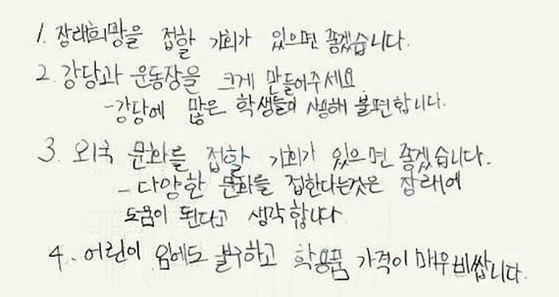 1. 장래희망을 접할 기회가 있으면 좋겠습니다.
2. 강당과 운동장을 크게 만들어주세요
-강당에 많은 학생들이 생해 불편합니다.
3. 외국 문화를 접할 기회가 있으면 좋겠습니다.
- 다양한 문화를 접한다는것은 장래에
도움이 된다고 생각합니다
4. 어린이 임에도 불구하고 학용품 가격이 매우 비쌉니다.